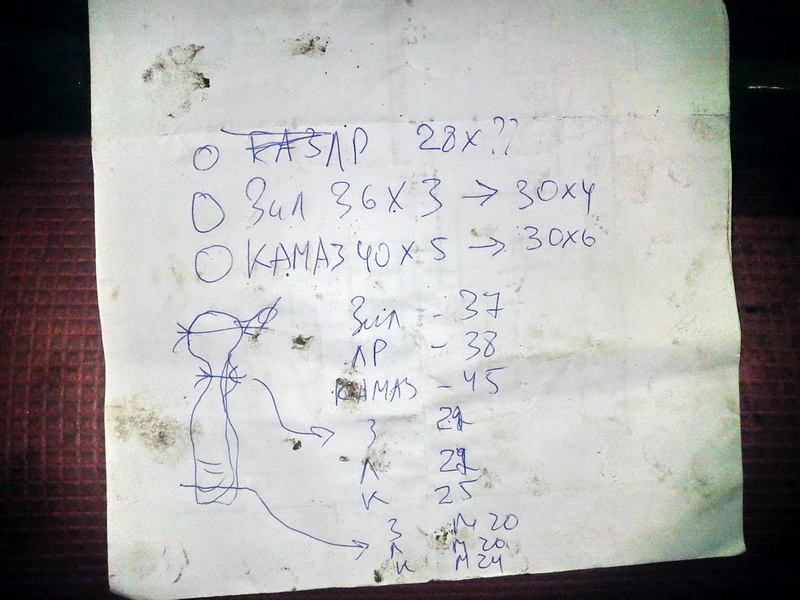 ЛР 28х??
Зил 36Х3 → 30х4
КАМАЗ 40х5 → 30х6
Зил - 37
ЛР - 38
КАМАЗ - 45
З 21
Л 21
К 25
З М 20
Л М 20
К М 24